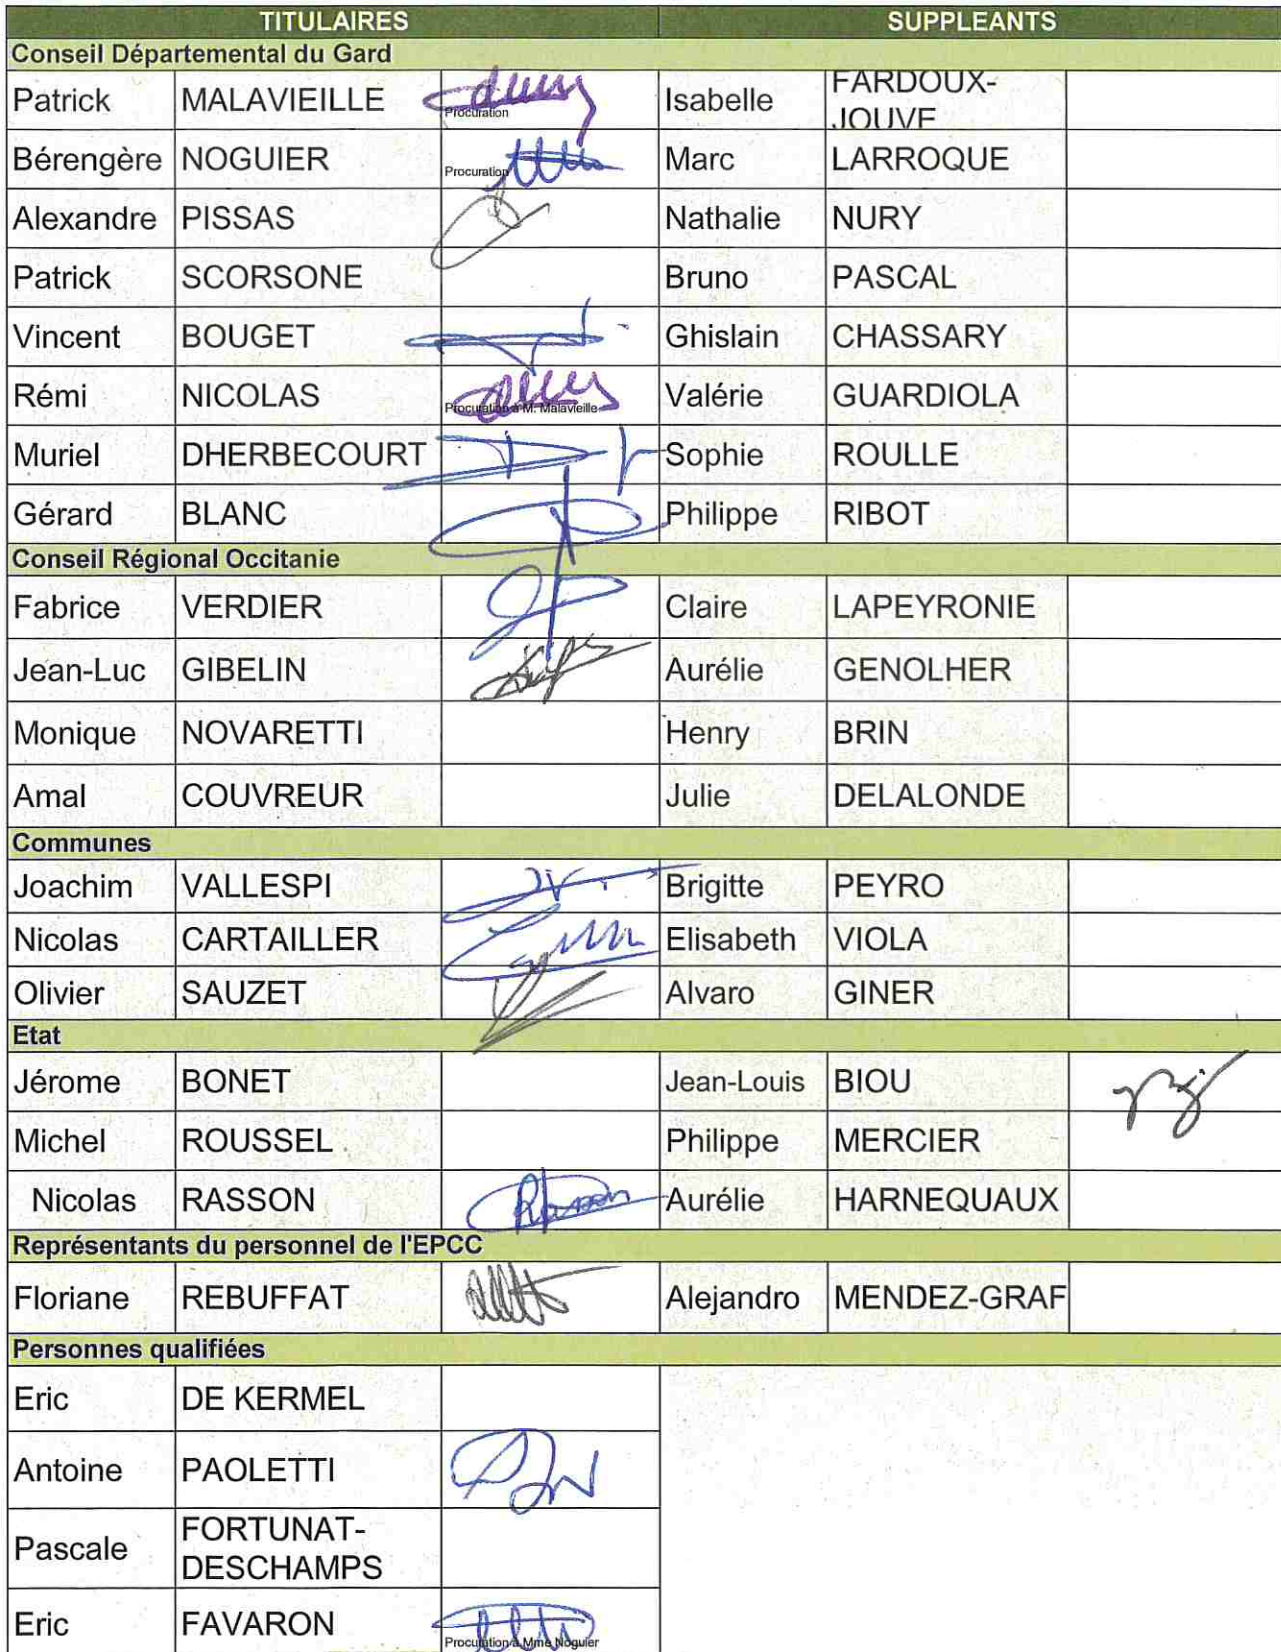 TITULAIRES SUPPLEANTS
Conseil Départemental du Gard
Patrick MALAVIEILLE Procuration Isabelle FARDOUX-
JOUVE
Bérengère NOGUIER Procuration Marc LARROQUE
Alexandre PISSAS Nathalie NURY
Patrick SCORSONE Bruno PASCAL
Vincent BOUGET Ghislain CHASSARY
Rémi NICOLAS Procuration à M. Malavieille Valérie GUARDIOLA
Muriel DHERBECOURT Sophie ROULLE
Gérard BLANC Philippe RIBOT
Conseil Régional Occitanie
Fabrice VERDIER Claire LAPEYRONIE
Jean-Luc GIBELIN Aurélie GENOLHER
Monique NOVARETTI Henry BRIN
Amal COUVREUR Julie DELALONDE
Communes
Joachim VALLESPI Brigitte PEYRO
Nicolas CARTAILLER Elisabeth VIOLA
Olivier SAUZET Alvaro GINER
Etat
Jérome BONET Jean-Louis BIOU
Michel ROUSSEL Philippe MERCIER
Nicolas RASSON Rasson Aurélie HARNEQUAUX
Représentants du personnel de l'EPCC
Floriane REBUFFAT Alejandro MENDEZ-GRAF
Personnes qualifiées
Eric DE KERMEL
Antoine PAOLETTI
Pascale FORTUNAT-
DESCHAMPS
Eric FAVARON Procuration à Mme Noguier